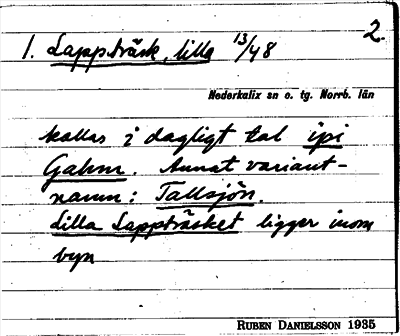 2.
1. Lappträsk, lilla 13/48
Nederkalix sn o. tg. Norrb. län
kallas i dagligt tal ipi
Gahm. Annat variant-
namn: Tallsjön.
Lilla Lappträsket ligger inom
byn
RUBEN DANIELSSON 1935